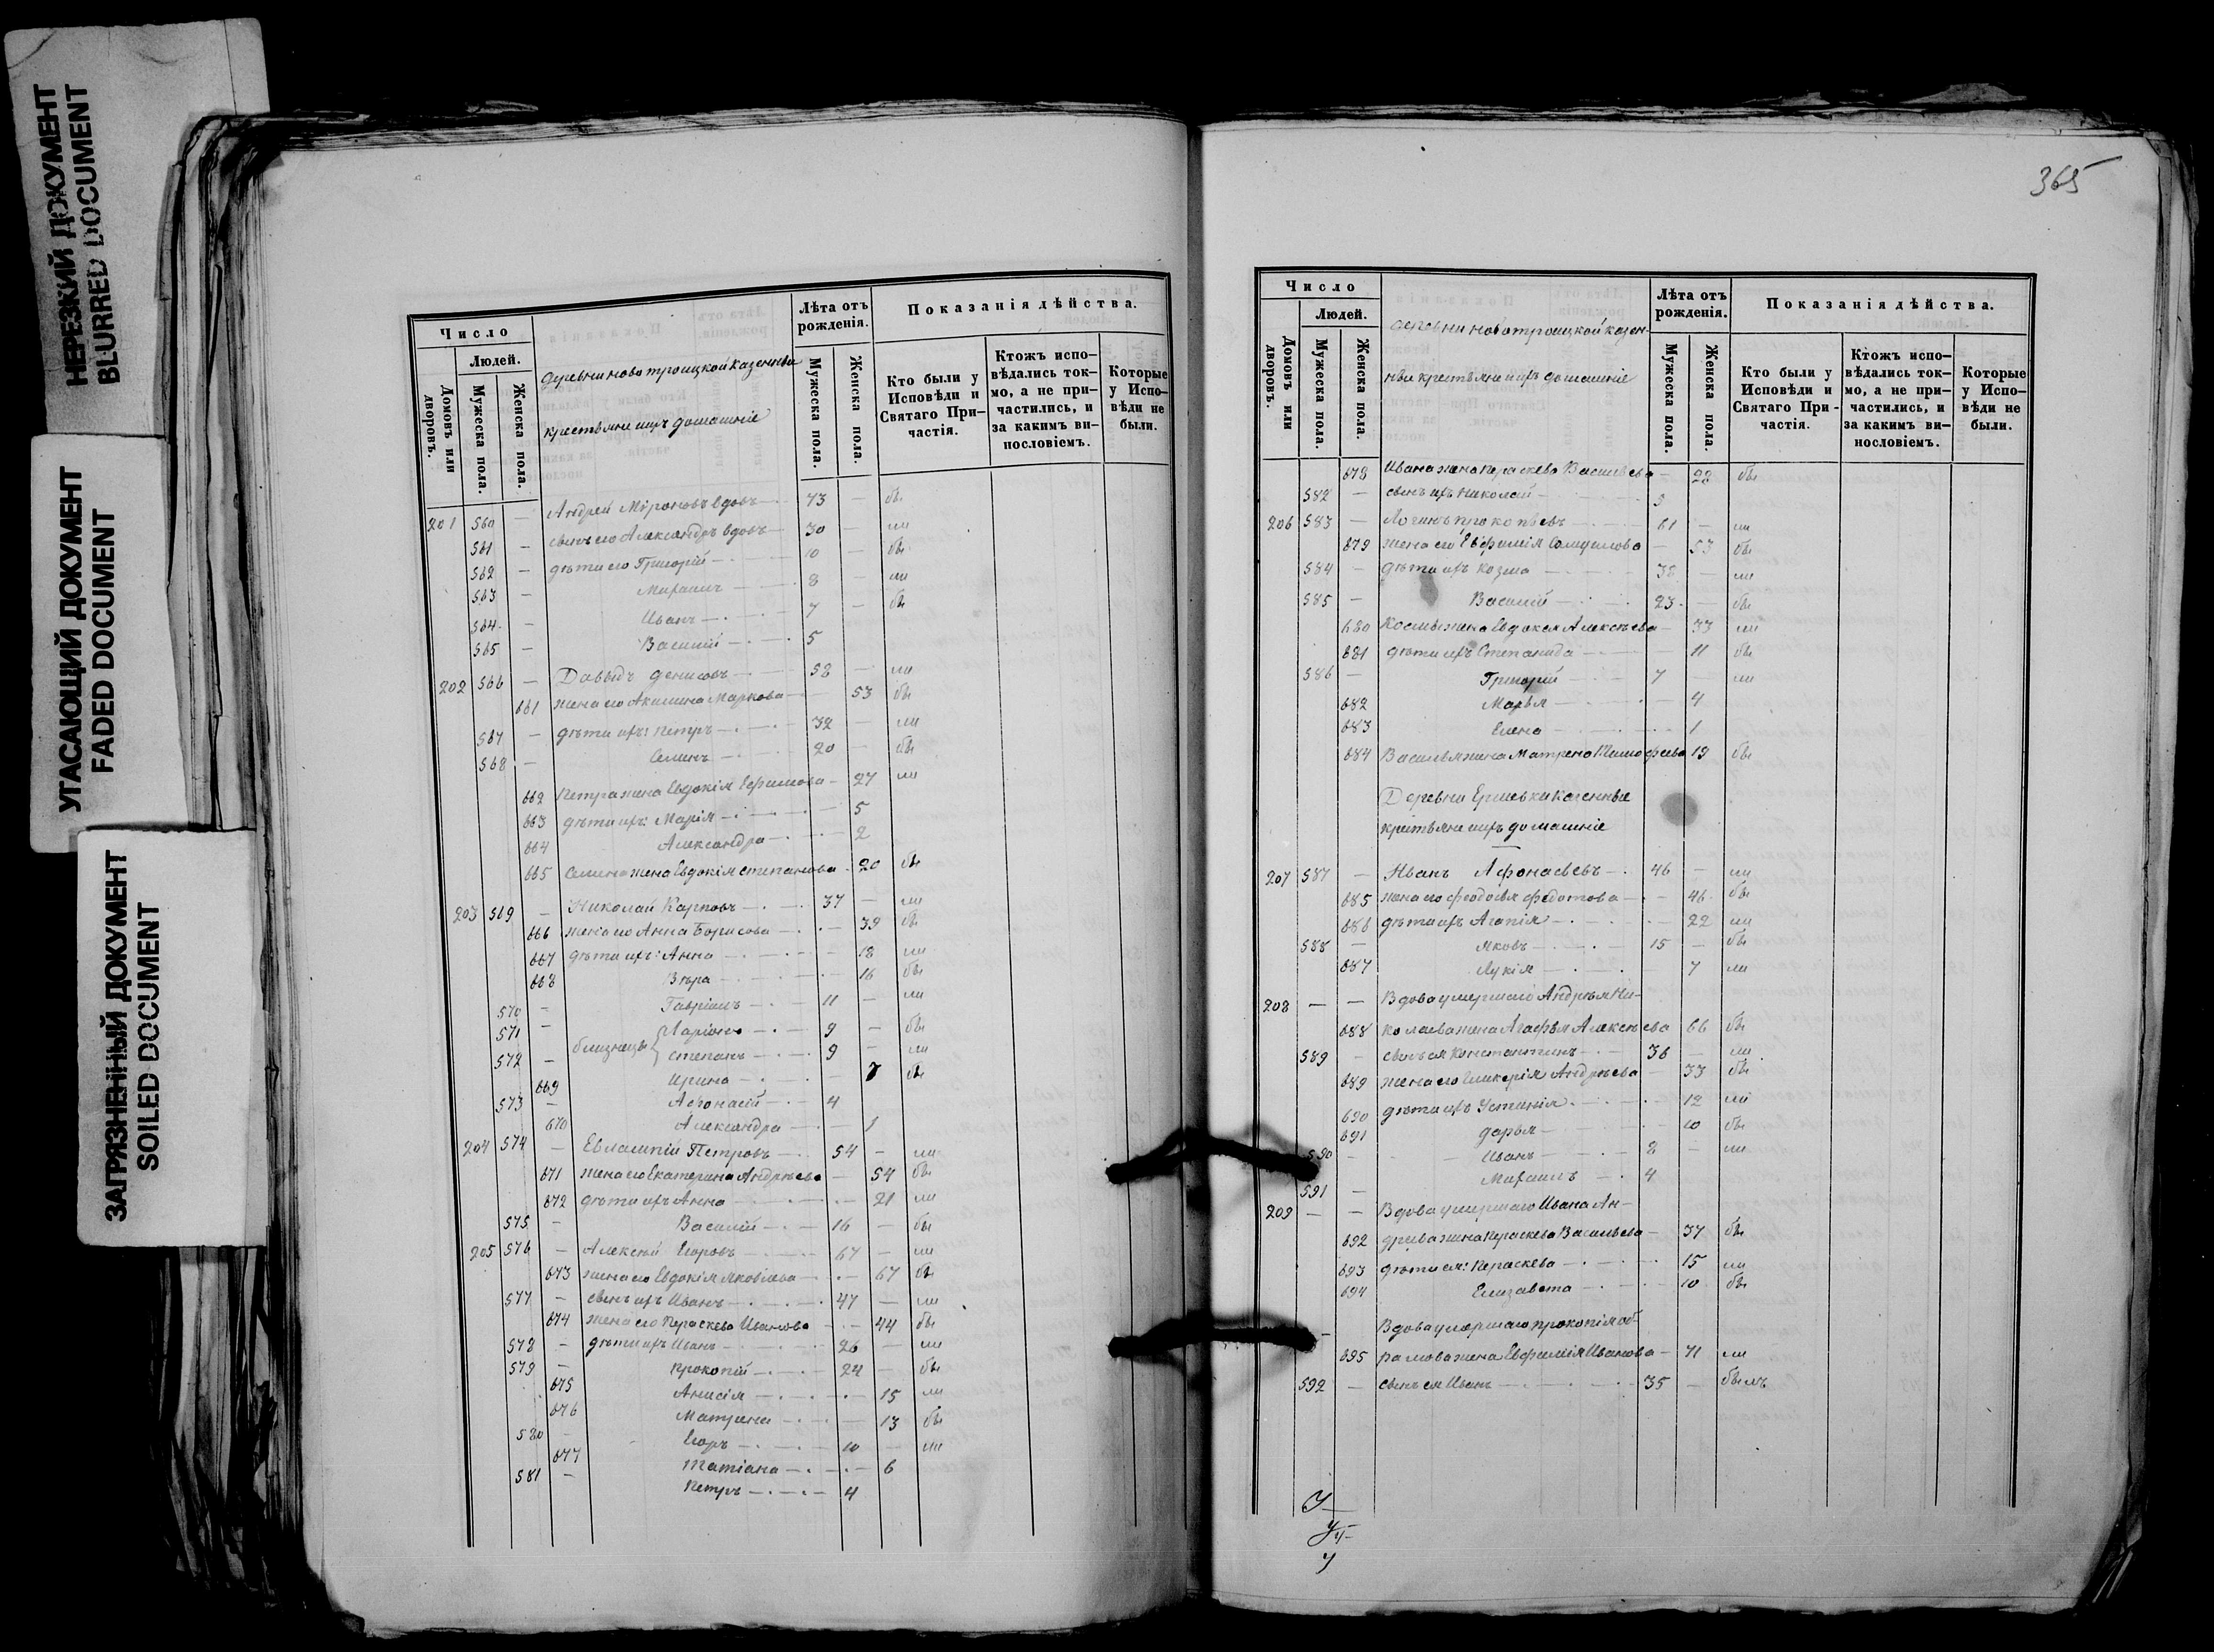 НЕРЕЗКИЙ ДОКУМЕНТ
BLURRED DOCUMENT
УГАСАЮЩИЙ ДОКУМЕНТ
FADED DOCUMENT
ЗАГРЯЗНЕННЫЙ ДОКУМЕНТ
SOILED DOCUMENT
Число
Людей.
Домовъ или дворовъ.
Мужеска пола.
Женска пола.
деревни ново троицкой казенныи
крестьяне и ихъ домашніе
Лѣта отъ рожденія.
Мужеска пола.
Женска пола.
Показанія дѣйства.
Кто были у Исповѣди и Святаго При-частія.
Ктожъ испо-вѣдались ток-мо, а не при-частились, и за какимъ ви-нословіемъ.
Которые у Испо-вѣди не были.
201 560 — Андрей Мѵроновъ вдовъ 73 — бы
561 — сынъ его Александръ вдовъ 30 — ли
562 — дѣти его Григорій 10 — бы
563 — Михаилъ 8 — ли
564 — Иванъ 7 — бы
565 — Василій 5
202 566 — Давыдъ Денисовъ 58 — ли
661 жена его Акилина Маркова — 53 бы
567 — дѣти ихъ: Петръ 32 — ли
568 — Семенъ 20 — бы
662 Петра жена Евдокія Ефимова — 27 ли
663 дѣти ихъ: Марія — 5
664 Александра — 2
665 Семена жена Евдокія Степанова 20 бы
203 569 — Николай Карповъ 37 — ли
666 жена его Анна Борисова — 39 бы
667 дѣти ихъ: Анна — 18 ли
668 Вѣра — 16 бы
570 — Гавріилъ 11 — ли
571 — близнецы Ларіонъ 9 — бы
572 — Степанъ 9 — ли
669 Ирина — 7 бы
573 — Афонасій 4
670 Александра — 1
204 574 — Евлампій Петровъ 54 — ли
671 жена его Екатерина Андрѣева — 54 бы
672 дѣти ихъ Анна — 21 ли
575 — Василій 16 — бы
205 576 — Алексѣй Егоровъ 67 — ли
673 жена его Евдокія Яковлева — 67 бы
577 — сынъ ихъ Иванъ 47 — ли
674 жена его Параскева Иванова — 44 бы
578 — дѣти ихъ Иванъ 26 — ли
579 — Прокопій 24 — бы
675 Анисія — 15 ли
676 Матрена — 13 бы
580 — Егоръ 10 — ли
677 Татіана — 6
581 — Петръ 4
365
Число
Людей.
Домовъ или дворовъ.
Мужеска пола.
Женска пола.
деревни новотроицкой казен-
ныи крестьяне и ихъ домашніе
Лѣта отъ рожденія.
Мужеска пола.
Женска пола.
Показанія дѣйства.
Кто были у Исповѣди и Святаго При-частія.
Ктожъ испо-вѣдались ток-мо, а не при-частились, и за какимъ ви-нословіемъ.
Которые у Испо-вѣди не были.
678 Ивана жена Параскева Васильева — 28 бы
582 — сынъ ихъ Николай
206 583 — Прокопьевъ 61 — ли
679 жена его Евфимія Самуилова — 53 бы
584 — дѣти ихъ Козма — ли
585 — Василій 23 — бы
680 Космы жена Евдокея Алексѣева — 33 ли
681 дѣти ихъ Степанида — 11 бы
586 — Григорій 7 — ли
682 Марья — 4
683 Елена — 1
684 Василья жена Матрена Тимофеева 19 бы
Деревни Ершевки казенные
крестьяне и ихъ домашніе
207 587 — Иванъ Афонасьевъ 46 — ли
685 жена его Феодосья Федотова — 46 бы
686 дѣти ихъ Агапія — 22 ли
588 — Яковъ 15 — бы
687 Лукія — 7 ли
208 — — Вдова умершаго Андрѣя Ни-
688 колаева жена Агафья Алексѣева 66 бы
589 — сынъ ея Константинъ 36 — ли
689 жена его Гликерія Андрѣева — 33 бы
690 дѣти ихъ Устинія — 12 ли
691 Дарья — 10 бы
590 — Иванъ 8 — ли
591 — Михаилъ 4
209 — — Вдова умершаго Ивана Ан-
692 дреева жена Параскева Васильева — 37 бы
693 дѣти ея: Параскева — 15 ли
694 Елизавета — 10 бы
— Вдова умершаго Прокопія Аб-
695 рамова жена Евфимія Иванова — 71 ли
592 — сынъ ея Иванъ 35 — былъ